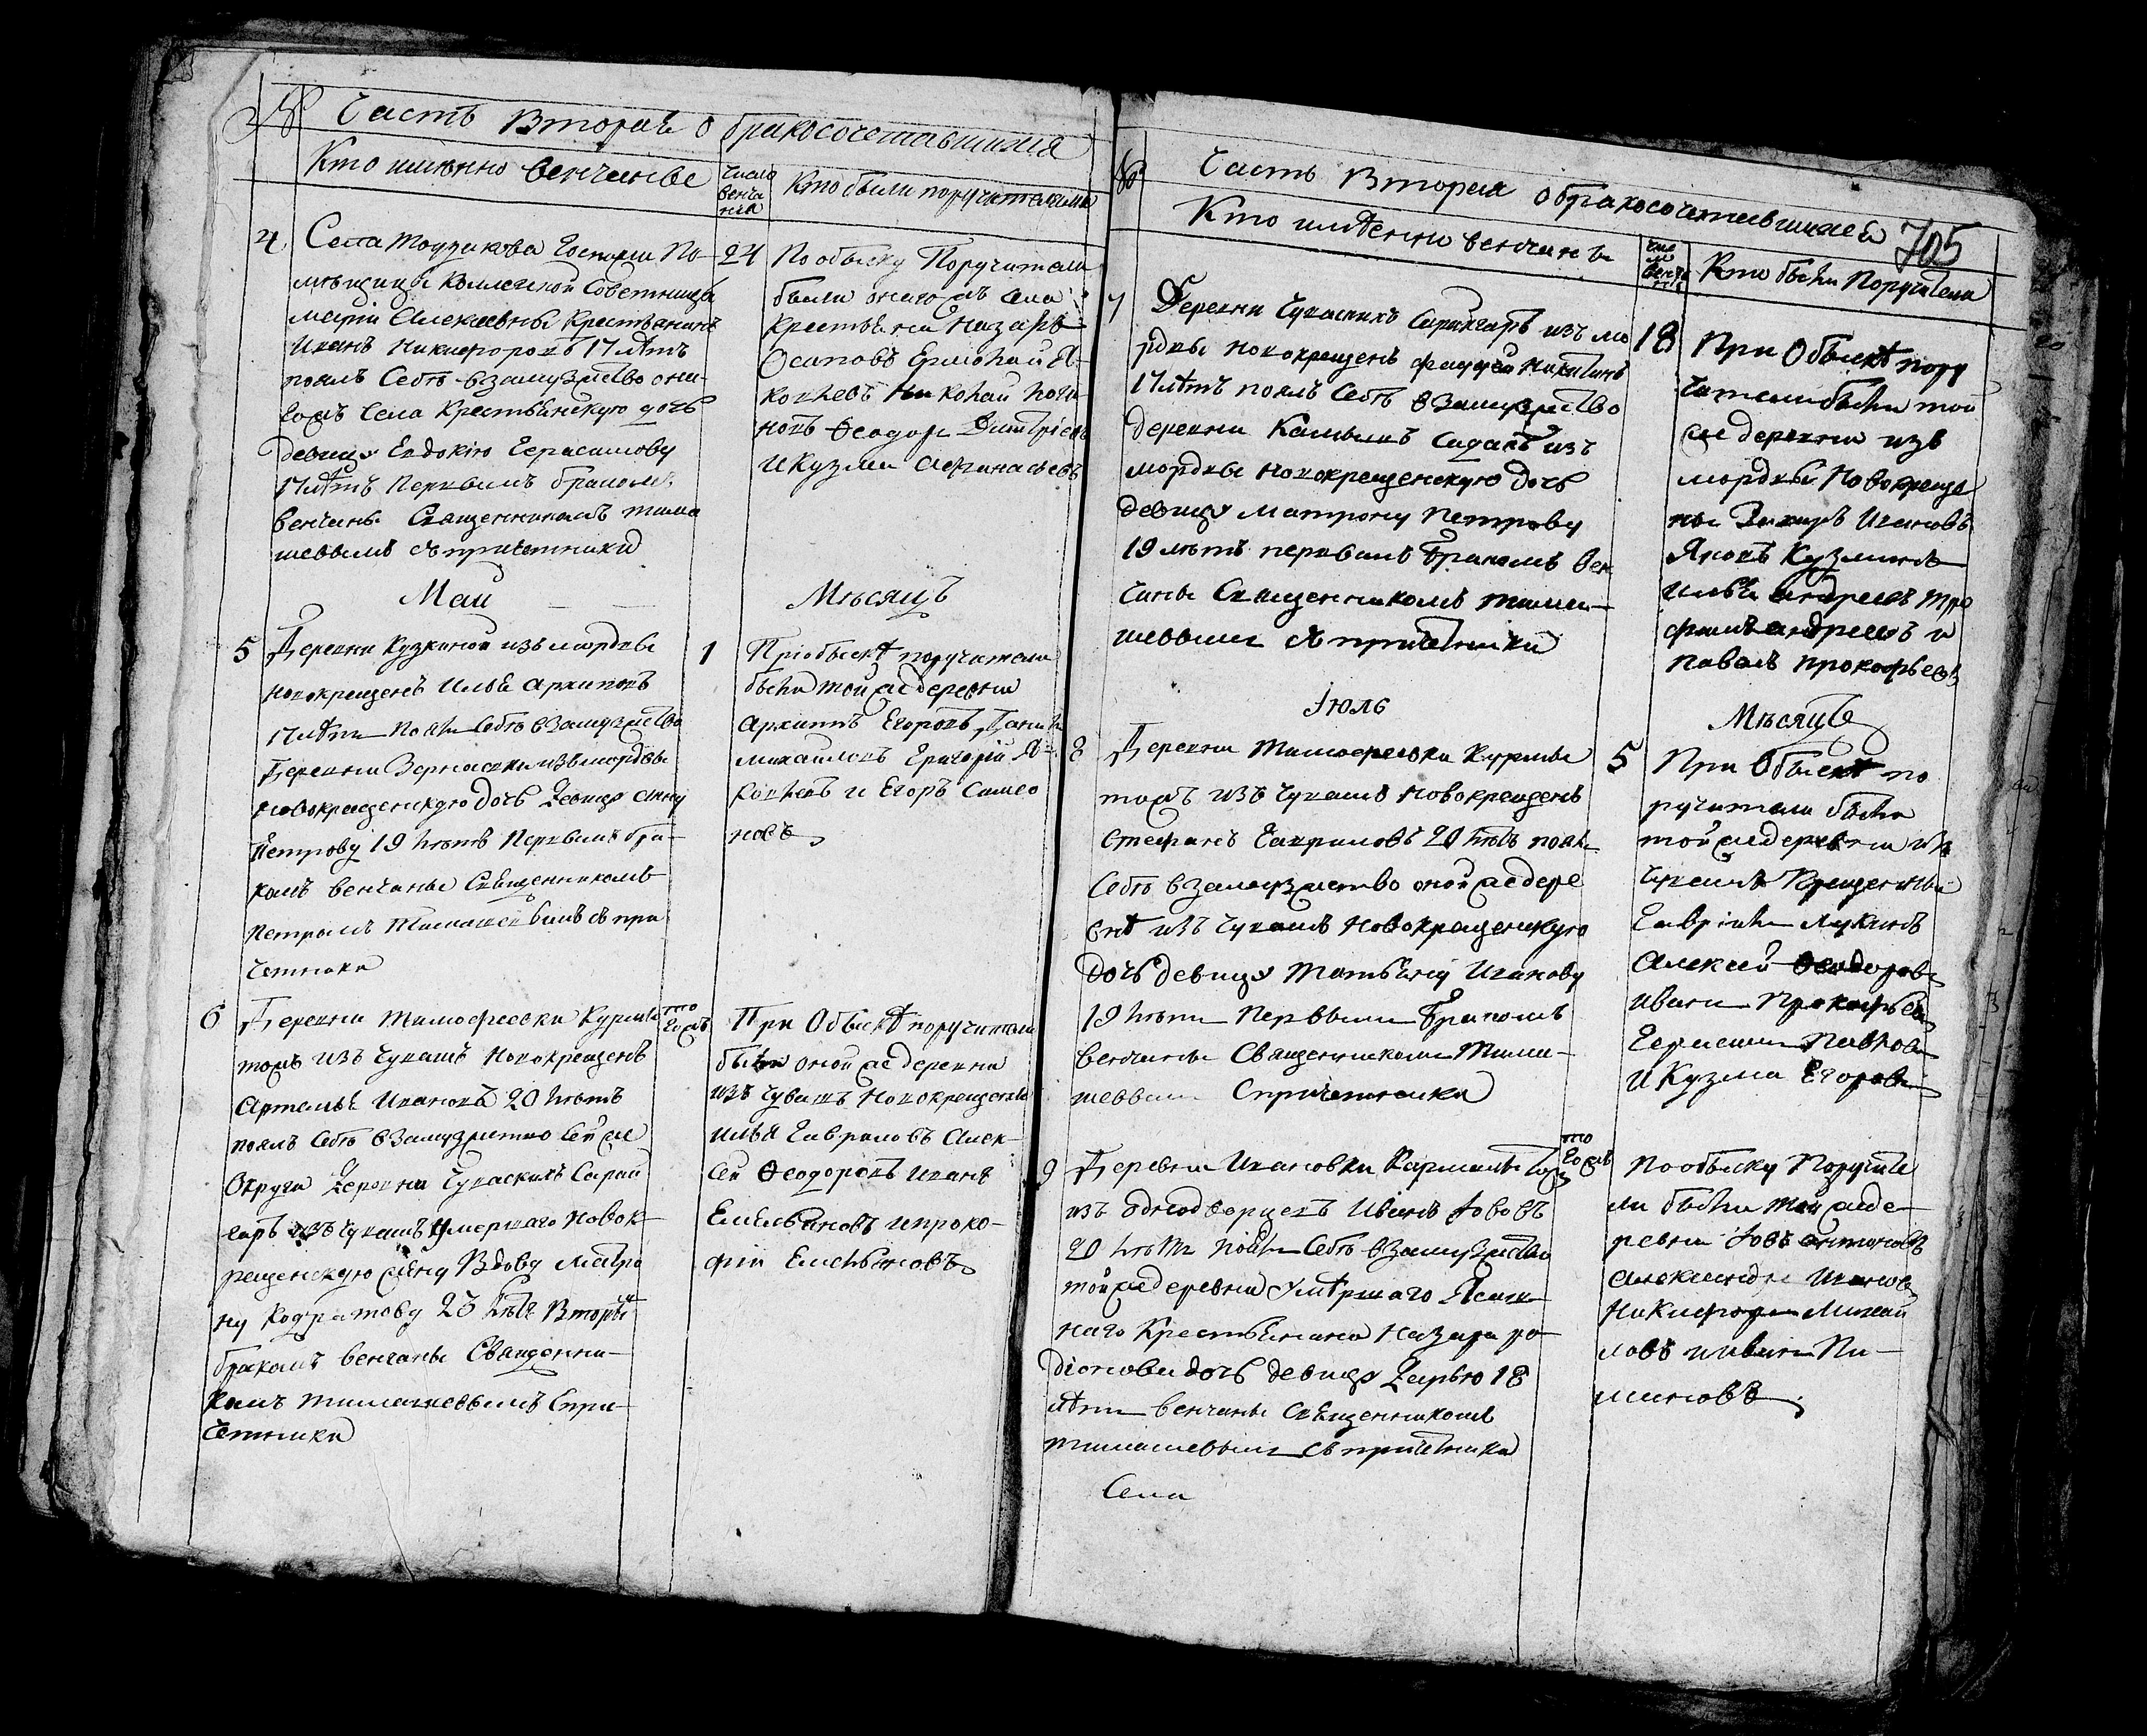 № Часть Вторая о бракосочетавшихся
Кто имянно венчаные
Число венчания
Кто были поручителями
4
Села Госпожи По-
мѣщицы Коллегской Советницы
Марiи Алексевны Крестьянинъ
Иванъ Никифоровъ 17 лѣтъ
поялъ Себѣ взамужство она-
гожъ Села Крестьянскую дочь
девицу Евдокiю Герасимову
17 лѣтъ Первымъ бракомъ
венчаны Священникомъ тима
шевымъ съ причетники
24
По обыску Поручители
были онагожъ села
крестьяни Назаръ
Осиповъ Ермолай Я-
ковлевъ Николай
новъ Ѳеодоръ Димтрiевъ
и Кузма Афанасьевъ
Маи
Мѣсяцъ
5
Деревни Кузкиной изъ мордвы
новокрещенъ Илья Архиповъ
17 лѣтъ Поялъ Себѣ взамужство
Деревни изъ мордвы
новокрещенскую дочь девицу Анну
Петрову 19 лѣтъ Первымъ бра-
комъ венчаны Священникомъ
Петромъ Тимашевымъ съ при
четники
1
Прiобыскѣ поручители
были тойже деревни
Архипъ Егоровъ Данила
михаиловъ Григорiй Я-
ковлевъ и Егоръ Симео
новъ
6
Деревни Тимофеевки Курмы
тожъ изъ чувашъ Новокрещенъ
Артемьи Ивановъ 20 лѣтъ
поялъ Себѣ взамужство сей же
Округи Деревни Чуваскихъ Сарай
гаръ изъ чувашъ умершаго новок-
рещенскую жену Вдову Матро
ну Кодратову 23 лѣтъ Вторымъ
бракомъ венчаны Священни-
комъ тимашевымъ Спри-
четники
того жъ
При Обыскѣ поручители
были оной же деревни
изъ чувашъ Новокрещены
Илья Гавриловъ Алек-
сей Ѳеодоровъ Иванъ
Емельяновъ ипроко-
фiй Емельяновъ
№ Часть Вторая о бракосочетавшихся 705
Кто имѣенно венчаны
Число венчания
Кто были Поручители
7
Деревни Чуваскихъ Сарайгаръ изъ мо
рдвы новокрещенъ фадей Никитинъ
17 лѣтъ поялъ Себѣ взамужство
деревни Камышъ Садакъ изъ
мордвы новокрещенскую дочь
девицу матрону петрову
19 лѣтъ первымъ бракомъ вен
чаны Священникомъ тима-
шевымъ съ причетники
18
При Обыскѣ пору
чители были той
же деревни изъ
мордвы Новокреще
ны Захаръ Ивановъ
Яковъ Кузминъ
Илья Андреевъ Тро
фимъ андреевъ и
павелъ прокофьевъ
Iюль
Мѣсяцъ
8
Деревни Тимофеевки Курмы
тожъ изъ чувашъ новокрещенъ
Стефанъ Гавриловъ 20 лѣтъ поялъ
Себѣ взамужство оной же дере
внѣ изъ чувашъ новокрещенскую
дочь девицу Татьяну Иванову
19 лѣтъ Первымъ бракомъ
венчаны Священникомъ Тима-
шевымъ Спричетники
5
При Обыскѣ по
ручители были
тойже деревни изъ
чувашъ Крещенны
Гаврiилъ Лукинъ
Алексей Ѳеодоровъ
Иванъ Прокофьевъ
Герасимъ Павловъ
и Кузма Егоровъ
9
Деревни Ивановки Кармалы тожъ
изъ однодворцевъ Иванъ Iововъ
20 лѣтъ поялъ Себѣ взамужство
тойже деревни умѣршаго Ясаш-
наго Крестьянина Назара ро
дiонова дочь девицу Дарью 18
лѣтъ венчаны Священникомъ
тимашевымъ съ причетники
того жъ
По обыску Поручите
ли были тойжеде-
ревни Iовъ антоновъ
Александръ Ивановъ
Никифоръ Михай
ловъ и иванъ Пи-
миновъ
Села